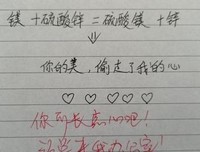 镁 + 硫酸锌 = 硫酸镁 + 锌
⇓
你的美，偷走了我的心
♡ ♡ ♡ ♡ ♡
你可长点心吧！